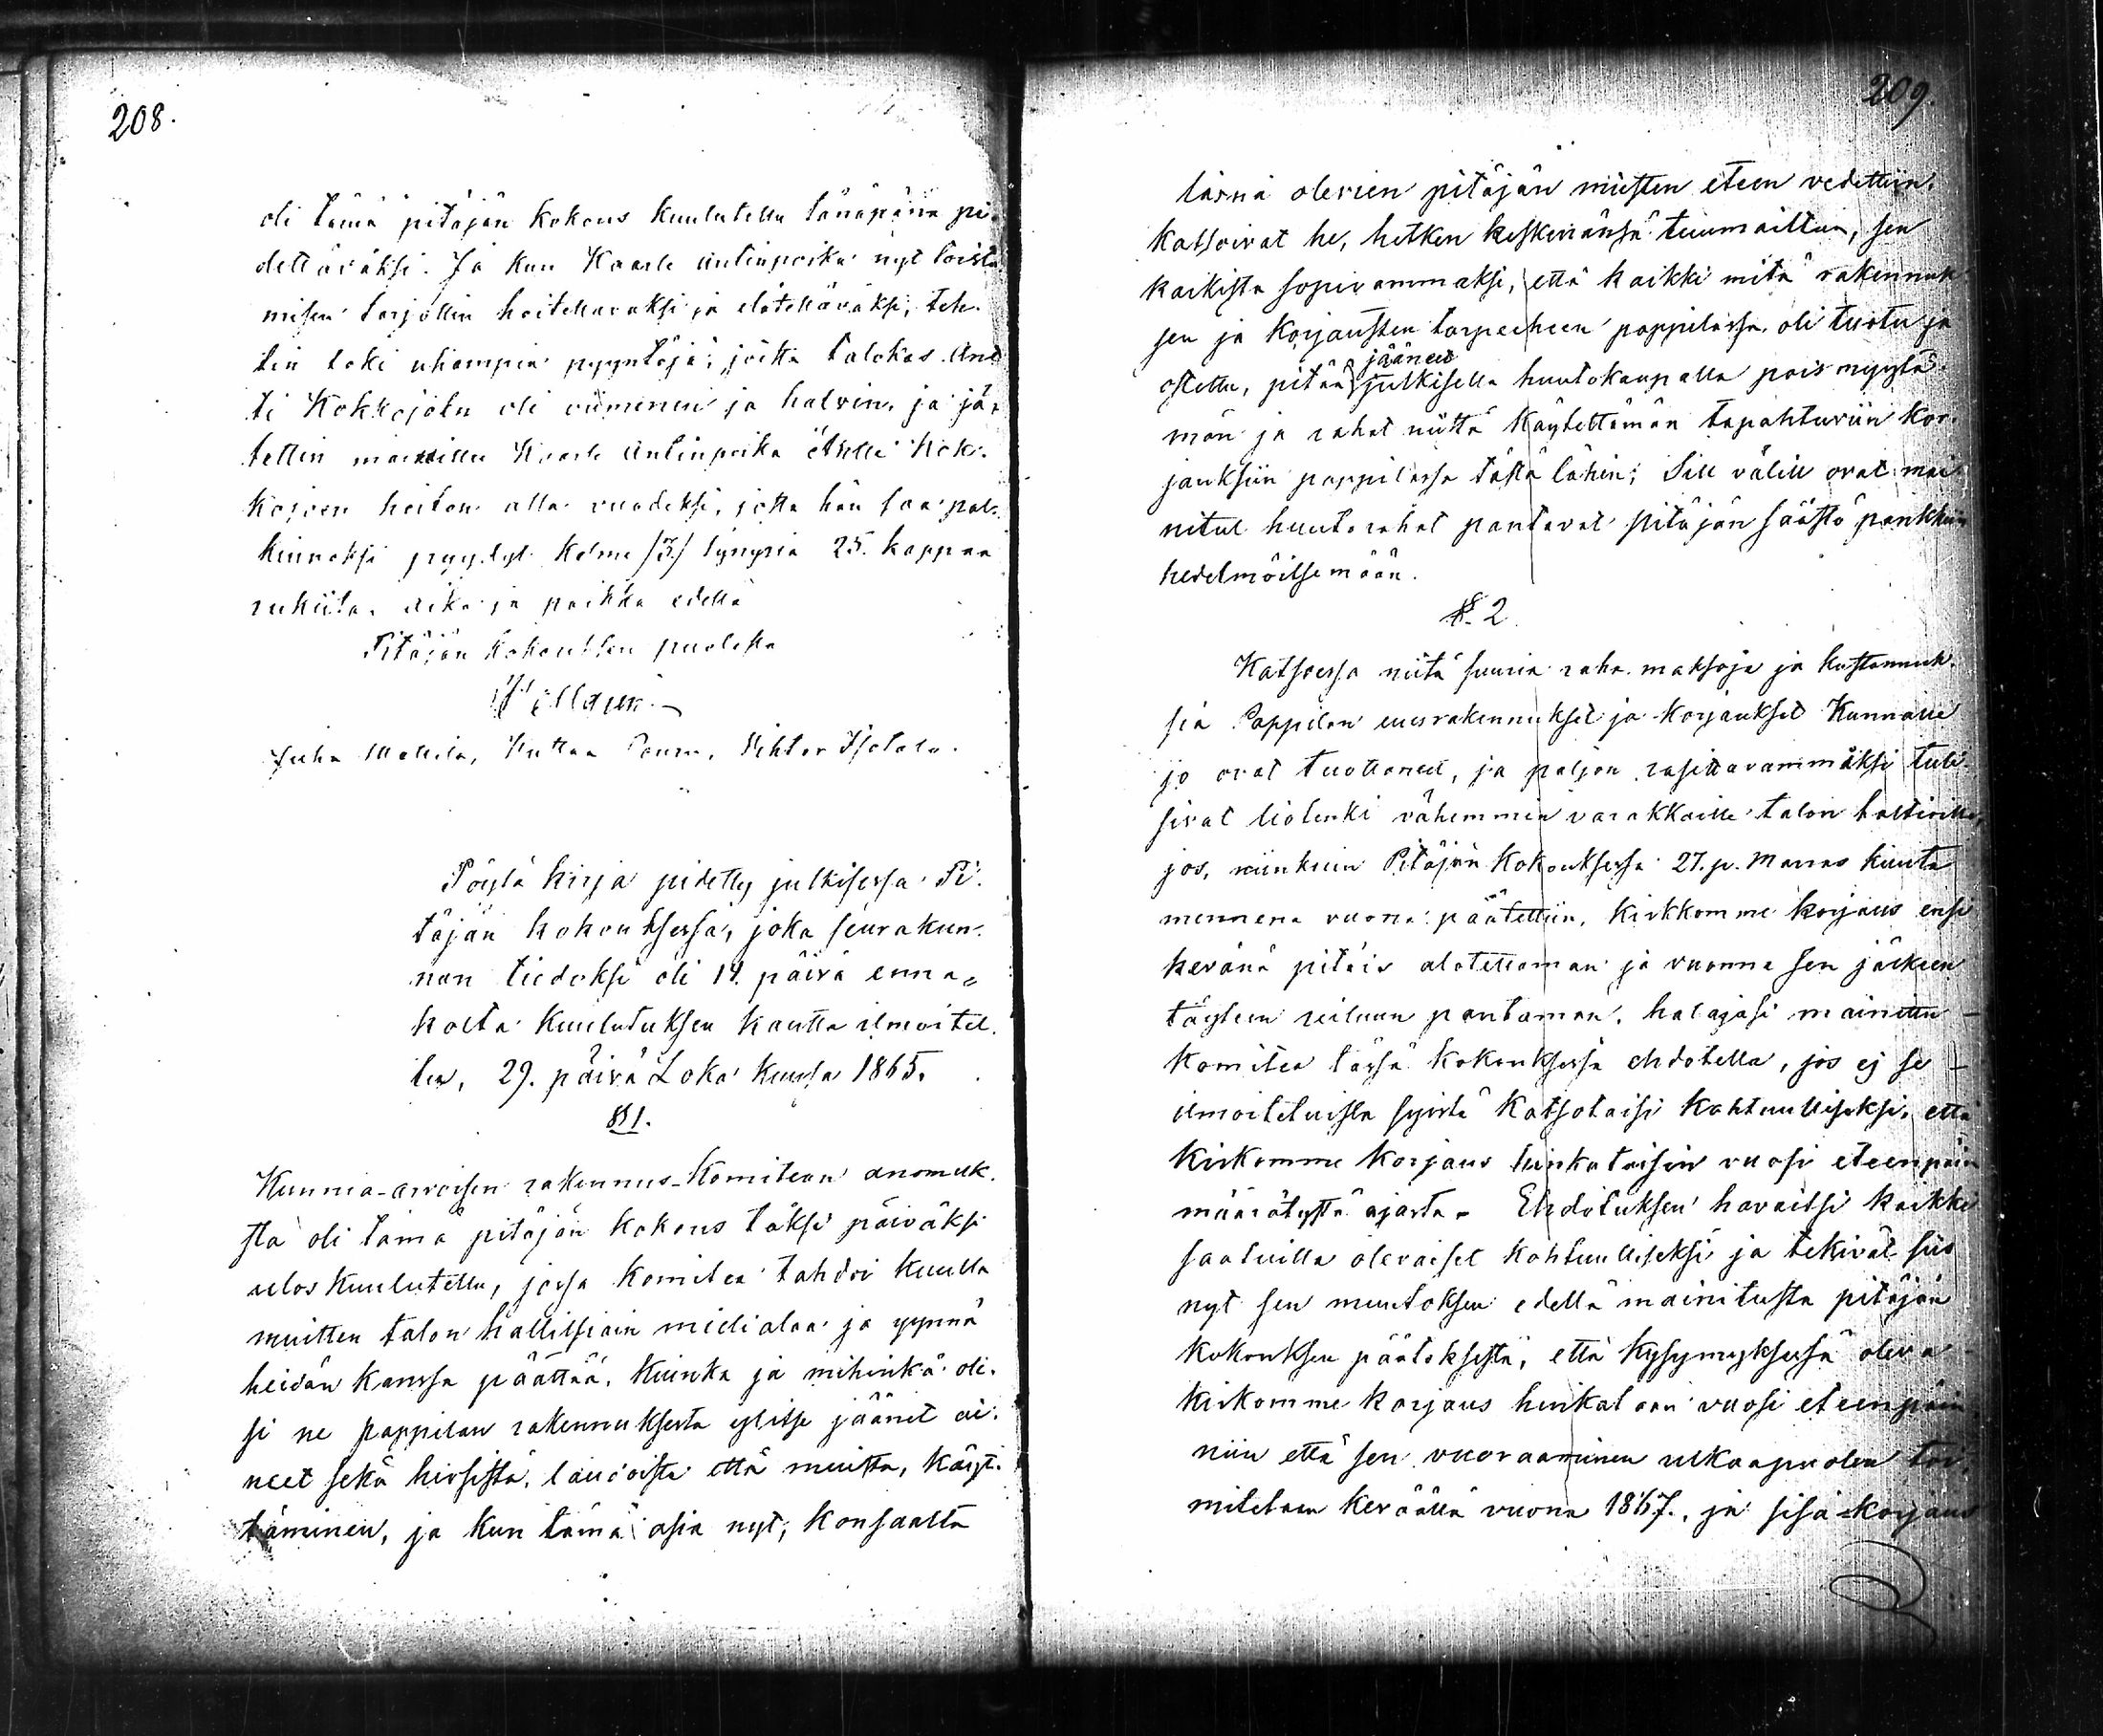 208.
oli tämä pitäjän kokous kuulutettu tänäpänä pi-
dettäväksi. Ja kun Kaarle Antinpoika nyt toista
misen tarjottiin hoitettavaksi ja elätettäväksi, teh-
tin toki uhompia pyyntöjä; joitta talokas Ant
ti Kokkojoku oli viiminen ja halvin, ja jä-
tettin mainittu Kaarle Antinpoika Kok-
kojoen hoiton alla vuodeksi, jotta hän saa pal-
kinnoksi pyydyt kolme /3./ tynyriä 25. kappaa
rukiita. Aika ja paikka edellä
Pitäjän kokouksen puolesta
Juha Mattila, Kustaa Vihtor Isotalo.
Pöytä kirja pidetty julkisessa Pi-
täjän kokouksessa, joka seurakun-
nan tiedoksi oli 14. päivä enna-
kolta kuulutuksen kautta ilmoitet-
tu, 29. päivä Loka kuussa 1865.
§ 1.
Kunnia-arvoisen rakennus-Komitean anomuk-
sta oli tämä pitäjän kokous täksi päiväksi
ulos kuulutettu, jossa Komitea tahdoi kuulla
muitten talon hallitsiain mielialaa ja ynnä
heidän kanssa päättää, kuinka ja mihinkä oli-
si ne pappilan rakennuksesta ylitse jäänet ai-
neet sekä hirsistä, laudoista että muista, käyt-
täminen, ja kun tämä asia nyt, konsaalta
209.
läsnä olevien pitäjän miesten eteen vedettiin,
katsoivat he, hetken keskenänsä tuumaittua, sen
kaikista sopivammaksi, että kaikki mitä rakennuk
sen ja korjausten tarpeeheen pappilassa oli tuotu ja
jääneet
ostettu, pitää julkisella huutokaupalla pois myytä-
män ja rahat niittä käytettämän tapahtuviin kor-
jauksiin pappilassa tästä lähin; Sill välill ovat mai-
nitut huutorahat pantavat pitäjän säästö pankkiin
hedelmöitsemään.
§ 2.
Katsoessa niitä suuria raha maksoja ja kustannuk-
sia Pappilan uusrakennukset ja korjaukset Kunnalle
jo ovat tuottaneet, ja paljon rasittavammaksi tuli-
sivat liotenki vähemmin varakkaille talon haltioille,
jos, niinkuin Pitäjän kokouksessa 27. p. Marras kuuta
mennenä vuonna päätettiin, kirkkomme korjaus ensi
kevänä pitäis alotettaman ja vuonna sen jälkeen
täyteen reiluun pantaman, halajasi mainittu -
Komitea tässä kokouksessa ehdotella, jos ej se -
ilmoitetuista syistä katsotaisi kohtuulliseksi, että
kirkomme korjaus lunkataisiin vuosi eteenpäin
määrätystä ajasta. Ehdotuksen havaitsi kaikki
saatuilla olevaiset kohtuulliseksi ja tekivät siis
nyt sen muutoksen edellä mainitusta pitäjän
kokouksen päätöksestä, että kysymyksessä oleva
kirkomme korjaus vuosi eteenpäin
niin että sen vuoraaminen ulkoapuolen toi-
mitetaan keväällä vuona 1867., ja sisä-korjaus